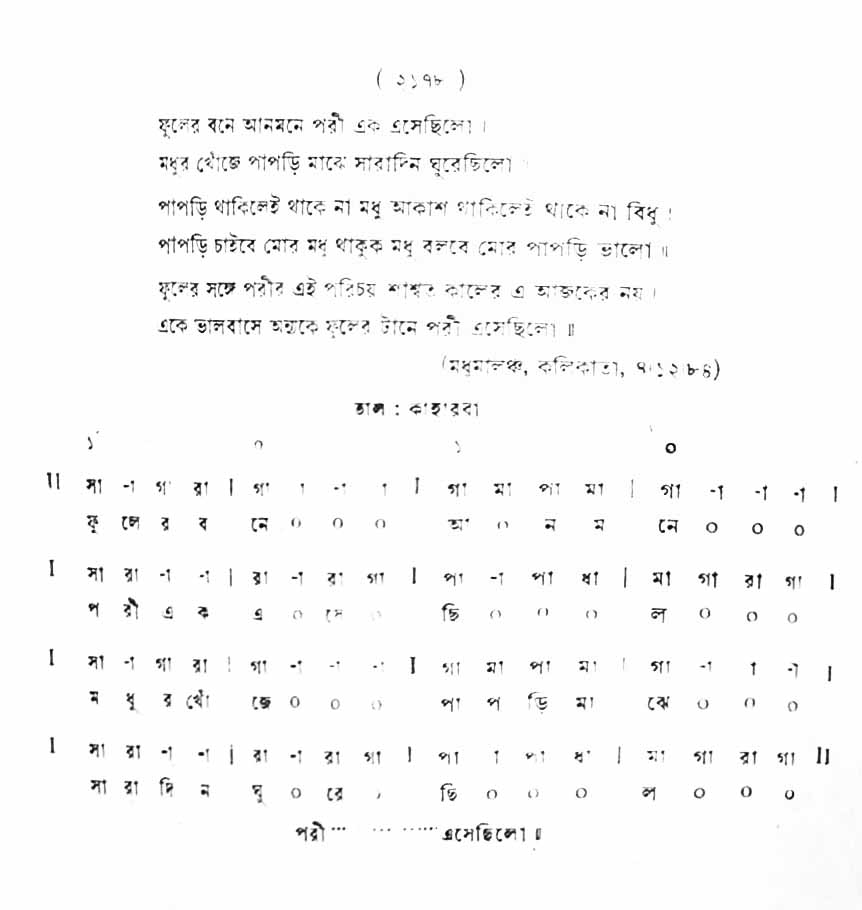 ( ২১৭৮ )
ফুলের বনে আনমনে পরী এক এসেছিলো ।
মধুর খোঁজে পাপড়ি মাঝে সারাদিন ঘুরেছিলো ।
পাপড়ি থাকিলেই থাকে না মধু আকাশ থাকিলেই থাকে না বিধু ।
পাপড়ি চাইবে মোর মধু থাকুক মধু বলবে মোর পাপড়ি ভালো ॥
ফুলের সঙ্গে পরীর এই পরিচয় শাশ্বত কালের এ আজকের নয় ।
একে ভালবাসে অন্যকে ফুলের টানে পরী এসেছিলো ॥
(মধুমালঞ্চ, কলিকাতা, ৭।১২।৮৪)
তাল : কাহারবা
১ ০ ১ ০
II সা -া গা রা | গা া -া া I গা মা পা মা | গা -া -া -া I
ফু লে র ব নে ০ ০ ০ আ ০ ন ম নে ০ ০ ০
I সা রা -া -া | রা -া রা গা I পা -া পা ধা | মা গা রা গা I
প রী এ ক এ ০ সে ০ ছি ০ ০ ০ ল ০ ০ ০
I সা -া গা রা | গা -া -া -া I গা মা পা মা | গা -া া -া I
ম ধু র খোঁ জে ০ ০ ০ পা প ড়ি মা ঝে ০ ০ ০
I সা রা -া -া | রা -া রা গা I পা া পা ধা | মা গা রা গা II
সা রা দি ন ঘু ০ রে ৽ ছি ০ ০ ০ ল ০ ০ ০
পরী ··· ··· ······ এসেছিলো ॥